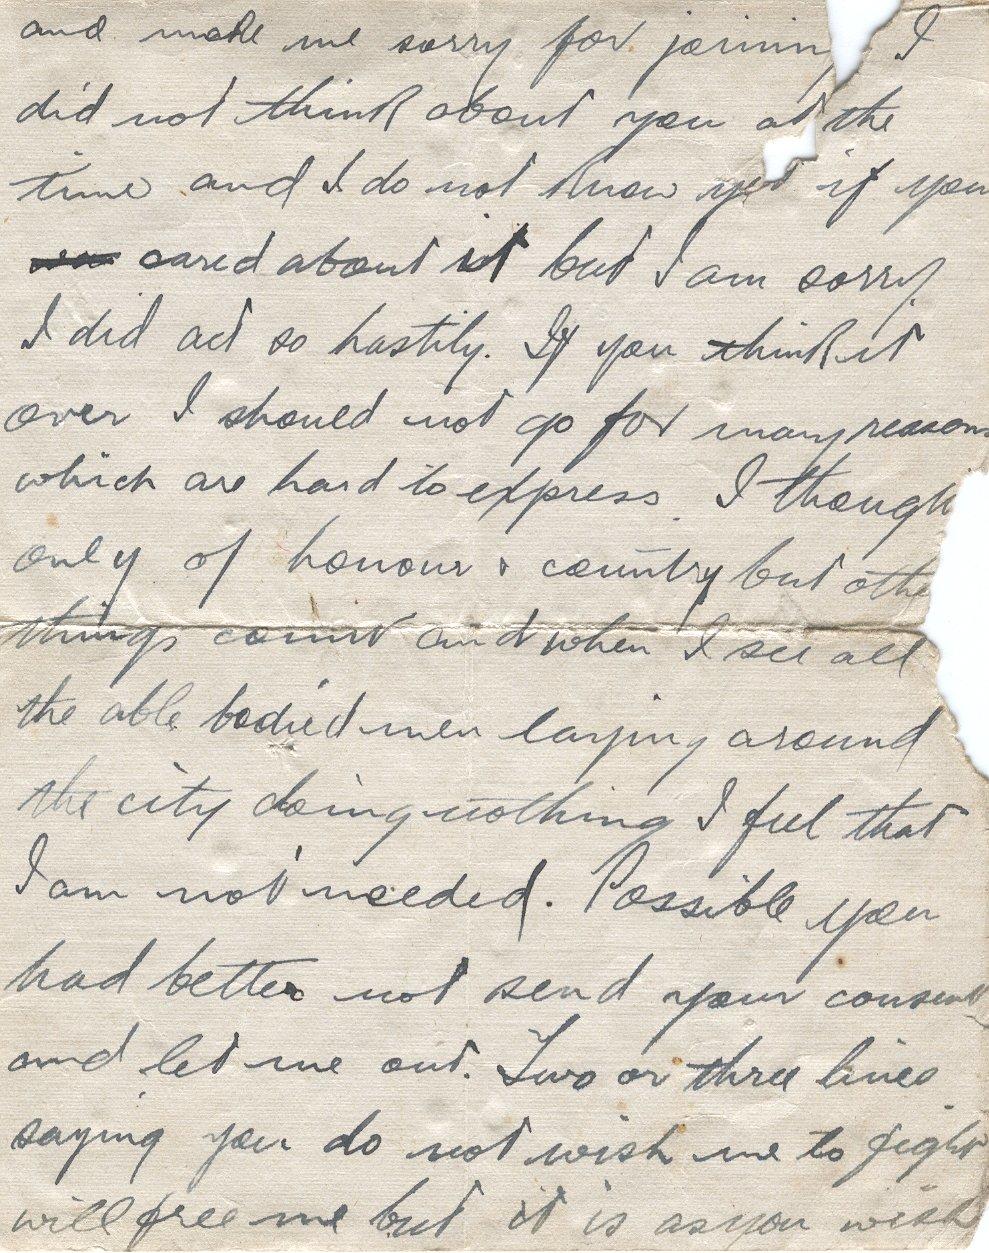 and make me sorry for joining I
did not think about you at the
time and I do not know yet if you
cared about it but I am sorry
I did act so hastily. If you think it
over I should not go for many reasons
which are hard to express. I though
only of honour & country but othe
things count and when I see all
the able bodied men laying around
the city doing nothing I feel that
I am not needed. Possible you
had better not send your consent
and let me out. Two or three lines
saying you do not wish me to fight
will free me but it is as you wish